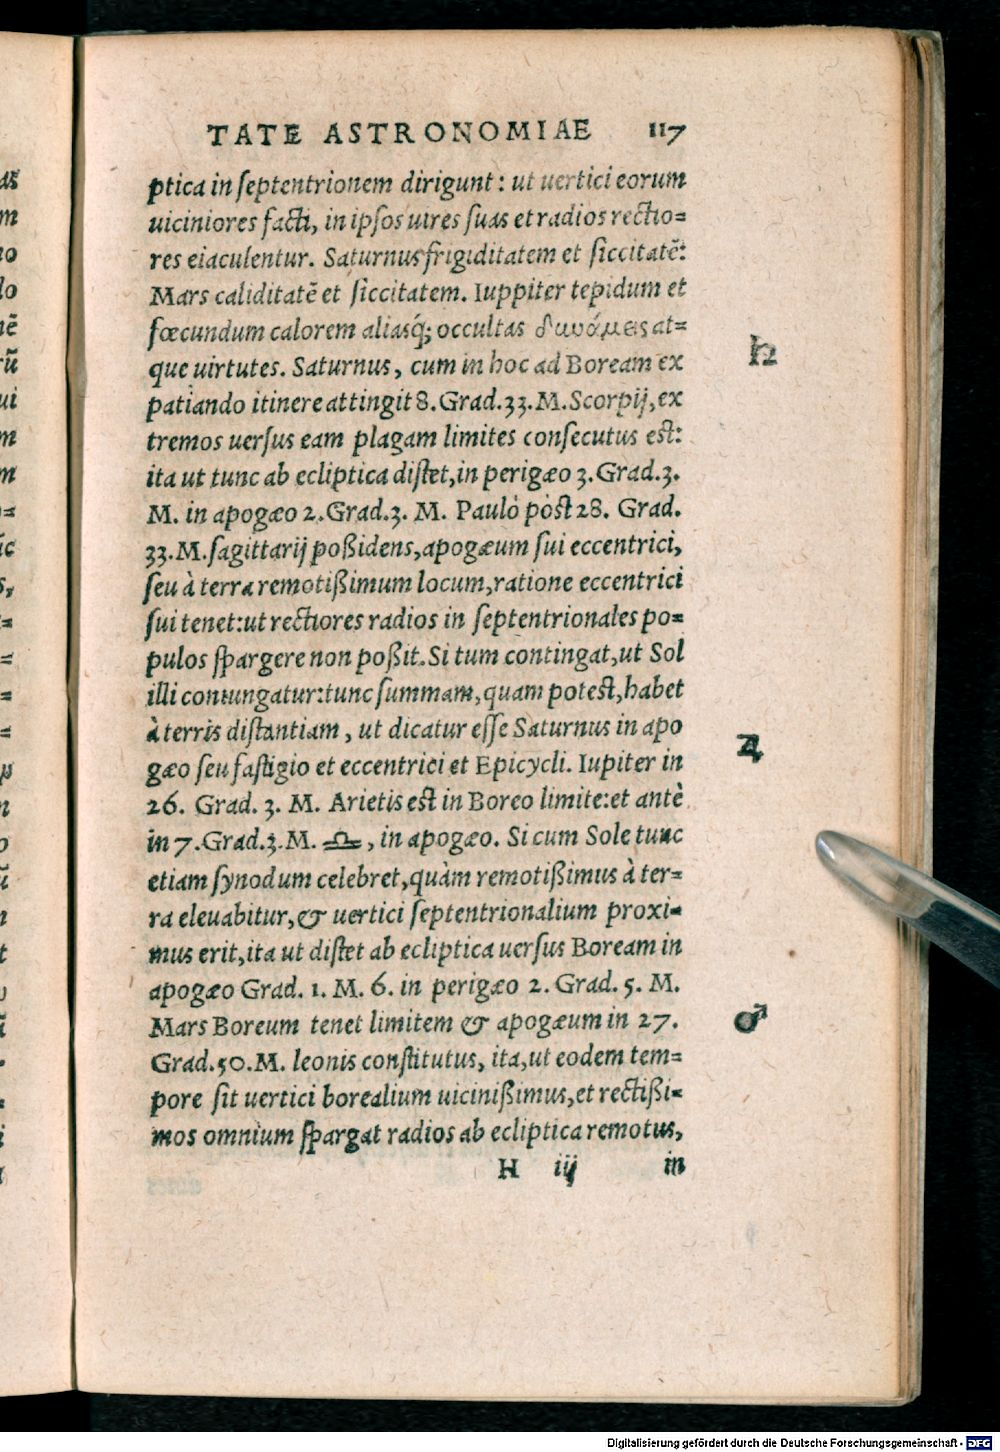 TATE ASTRONOMIAE 117
ptica in septentrionem dirigunt: ut uertici eorum
uiciniores facti, in ipsos uires suas et radios rectio=
res eiaculentur. Saturnus frigiditatem et siccitatē:
Mars caliditatē et siccitatem. Iuppiter tepidum et
fœcundum calorem aliasq́; occultas δυνάμεις at=
que uirtutes. Saturnus, cum in hoc ad Boream ex
♄
patiando itinere attingit 8. Grad. 33. M. Scorpij, ex
tremos uersus eam plagam limites consecutus est:
ita ut tunc ab ecliptica distet, in perigæo 3. Grad. 3.
M. in apogæo 2. Grad. 3. M. Paulò pòst 28. Grad.
33. M. sagittarij poßidens, apogæum sui eccentrici,
seu à terra remotißimum locum, ratione eccentrici
sui tenet: ut rectiores radios in septentrionales po=
pulos spargere non poßit. Si tum contingat, ut Sol
illi coniungatur: tunc summam, quam potest, habet
à terris distantiam, ut dicatur esse Saturnus in apo
♃
gæo seu fastigio et eccentrici et Epicycli. Iupiter in
26. Grad. 3. M. Arietis est in Boreo limite: et antè
in 7. Grad. 3. M. ♎, in apogæo. Si cum Sole tunc
etiam synodum celebret, quàm remotißimus à ter=
ra eleuabitur, & uertici septentrionalium proxi=
mus erit, ita ut distet ab ecliptica uersus Boream in
apogæo Grad. 1. M. 6. in perigæo 2. Grad. 5. M.
Mars Boreum tenet limitem & apogæum in 27.
♂
Grad. 50. M. leonis constitutus, ita, ut eodem tem=
pore sit uertici borealium uicinißimus, et rectißi=
mos omnium spargat radios ab ecliptica remotus,
H iij in
Digitalisierung gefördert durch die Deutsche Forschungsgemeinschaft - DFG